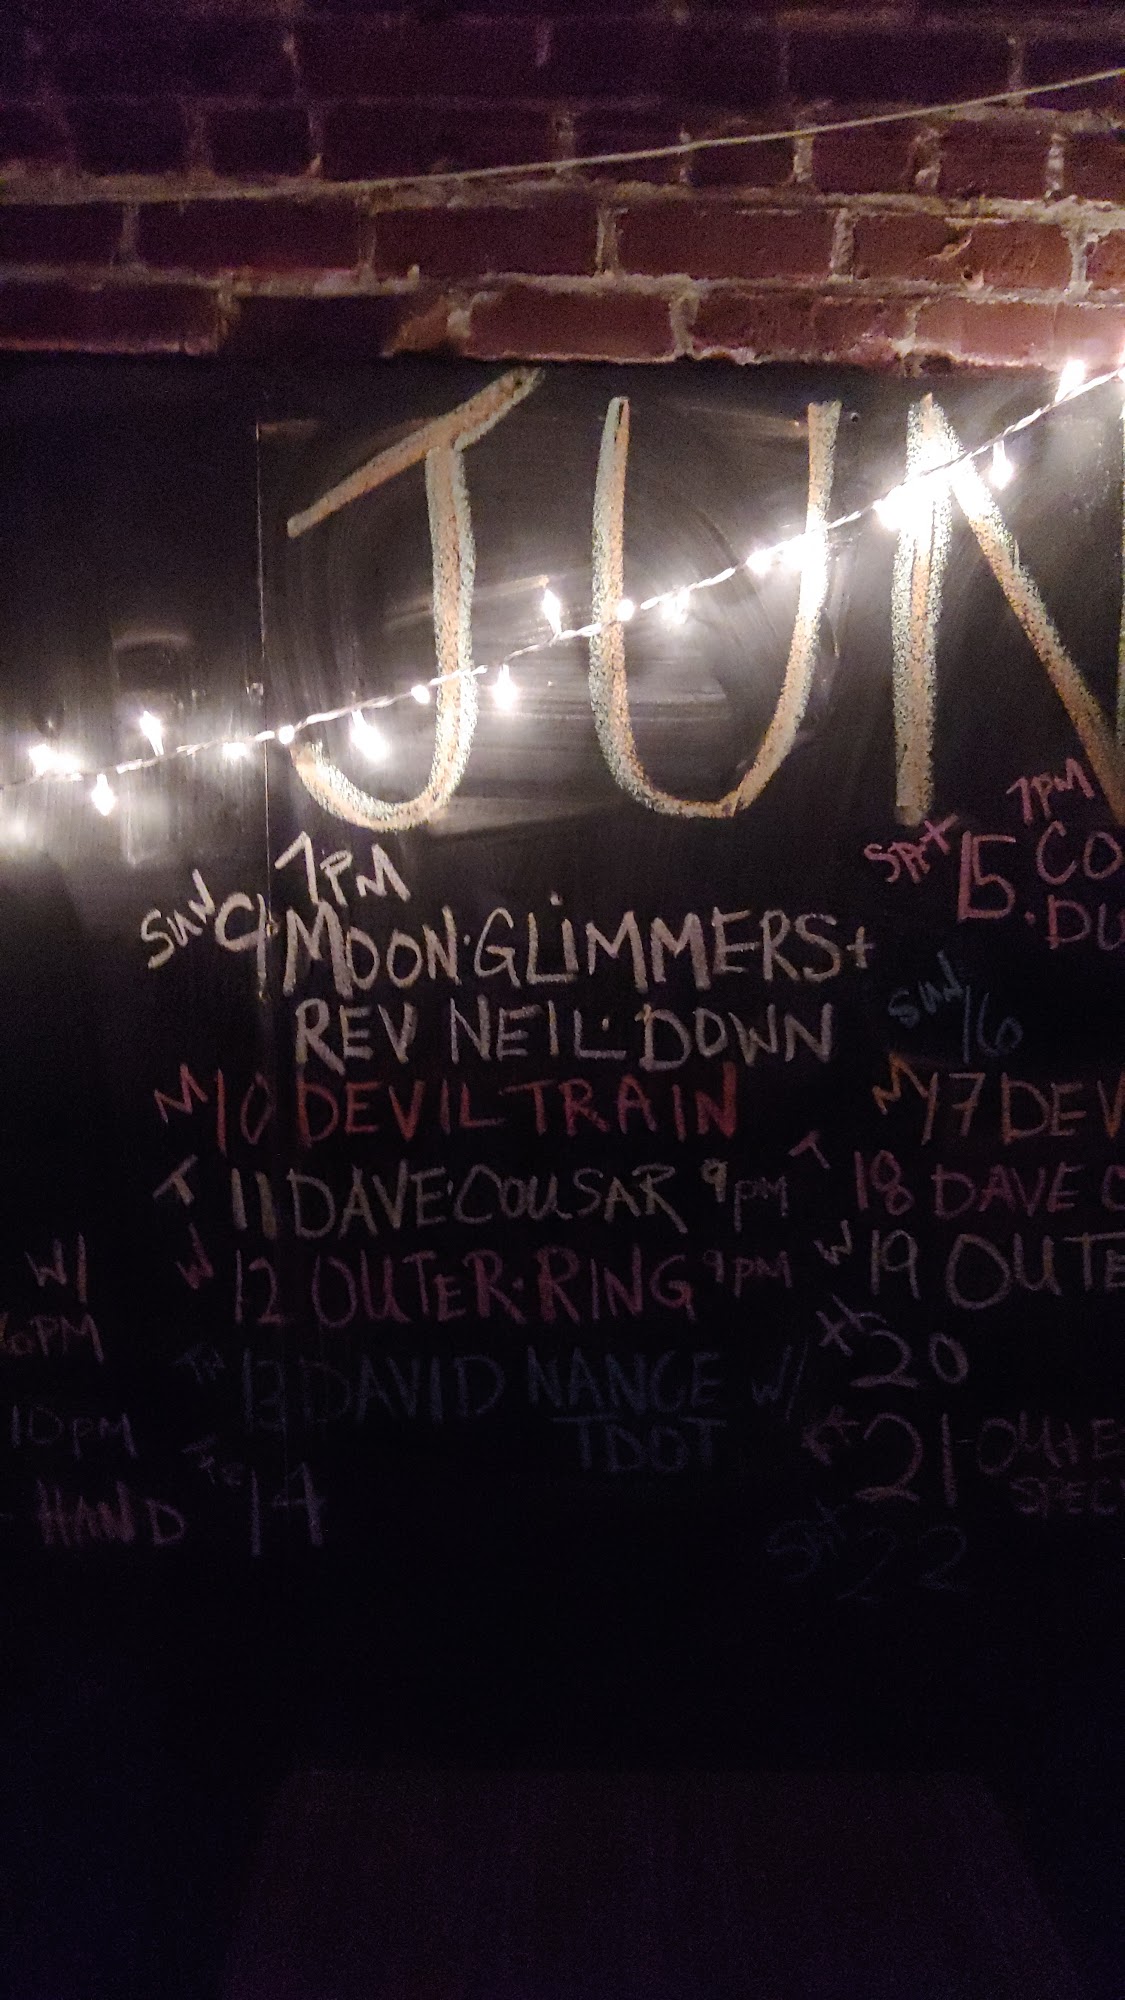 JUN
7PM
SUN 9 MOON·GLIMMERS+
REV NEIL·DOWN
M 10 DEVIL TRAIN
T 11 DAVE·COUSAR 9PM
W 12 OUTER·RING 9PM
TH 13 DAVID NANCE W/
TDOT
14
7PM
SAT 15 CO
DU
SUN 16
M 17 DEV
T 18 DAVE C
W 19 OUTE
TH 20
21 OUTE
SPEC
SAT 22
W/
PM
10PM
HAND